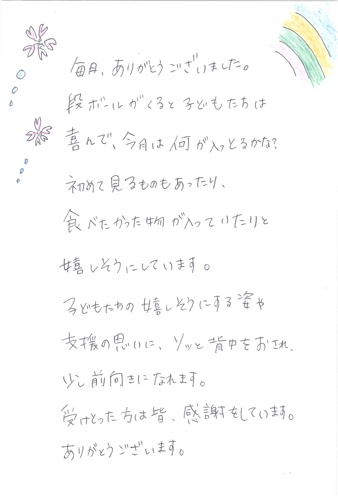 毎月、ありがとうございました。
段ボールがくると子どもたちは
喜んで、今月は何が入っとるかな?
初めて見るものもあったり、
食べたかった物が入っていたりと
嬉しそうにしています。
子どもたちの嬉しそうにする姿や
支援の思いに、ソッと背中をおされ、
少し前向きになれます。
受けとった方は皆、感謝をしています。
ありがとうございます。